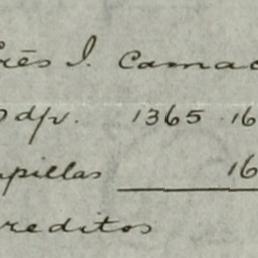 rēs I. Camac
D d/v. 1365 16
pillas 16
reditos